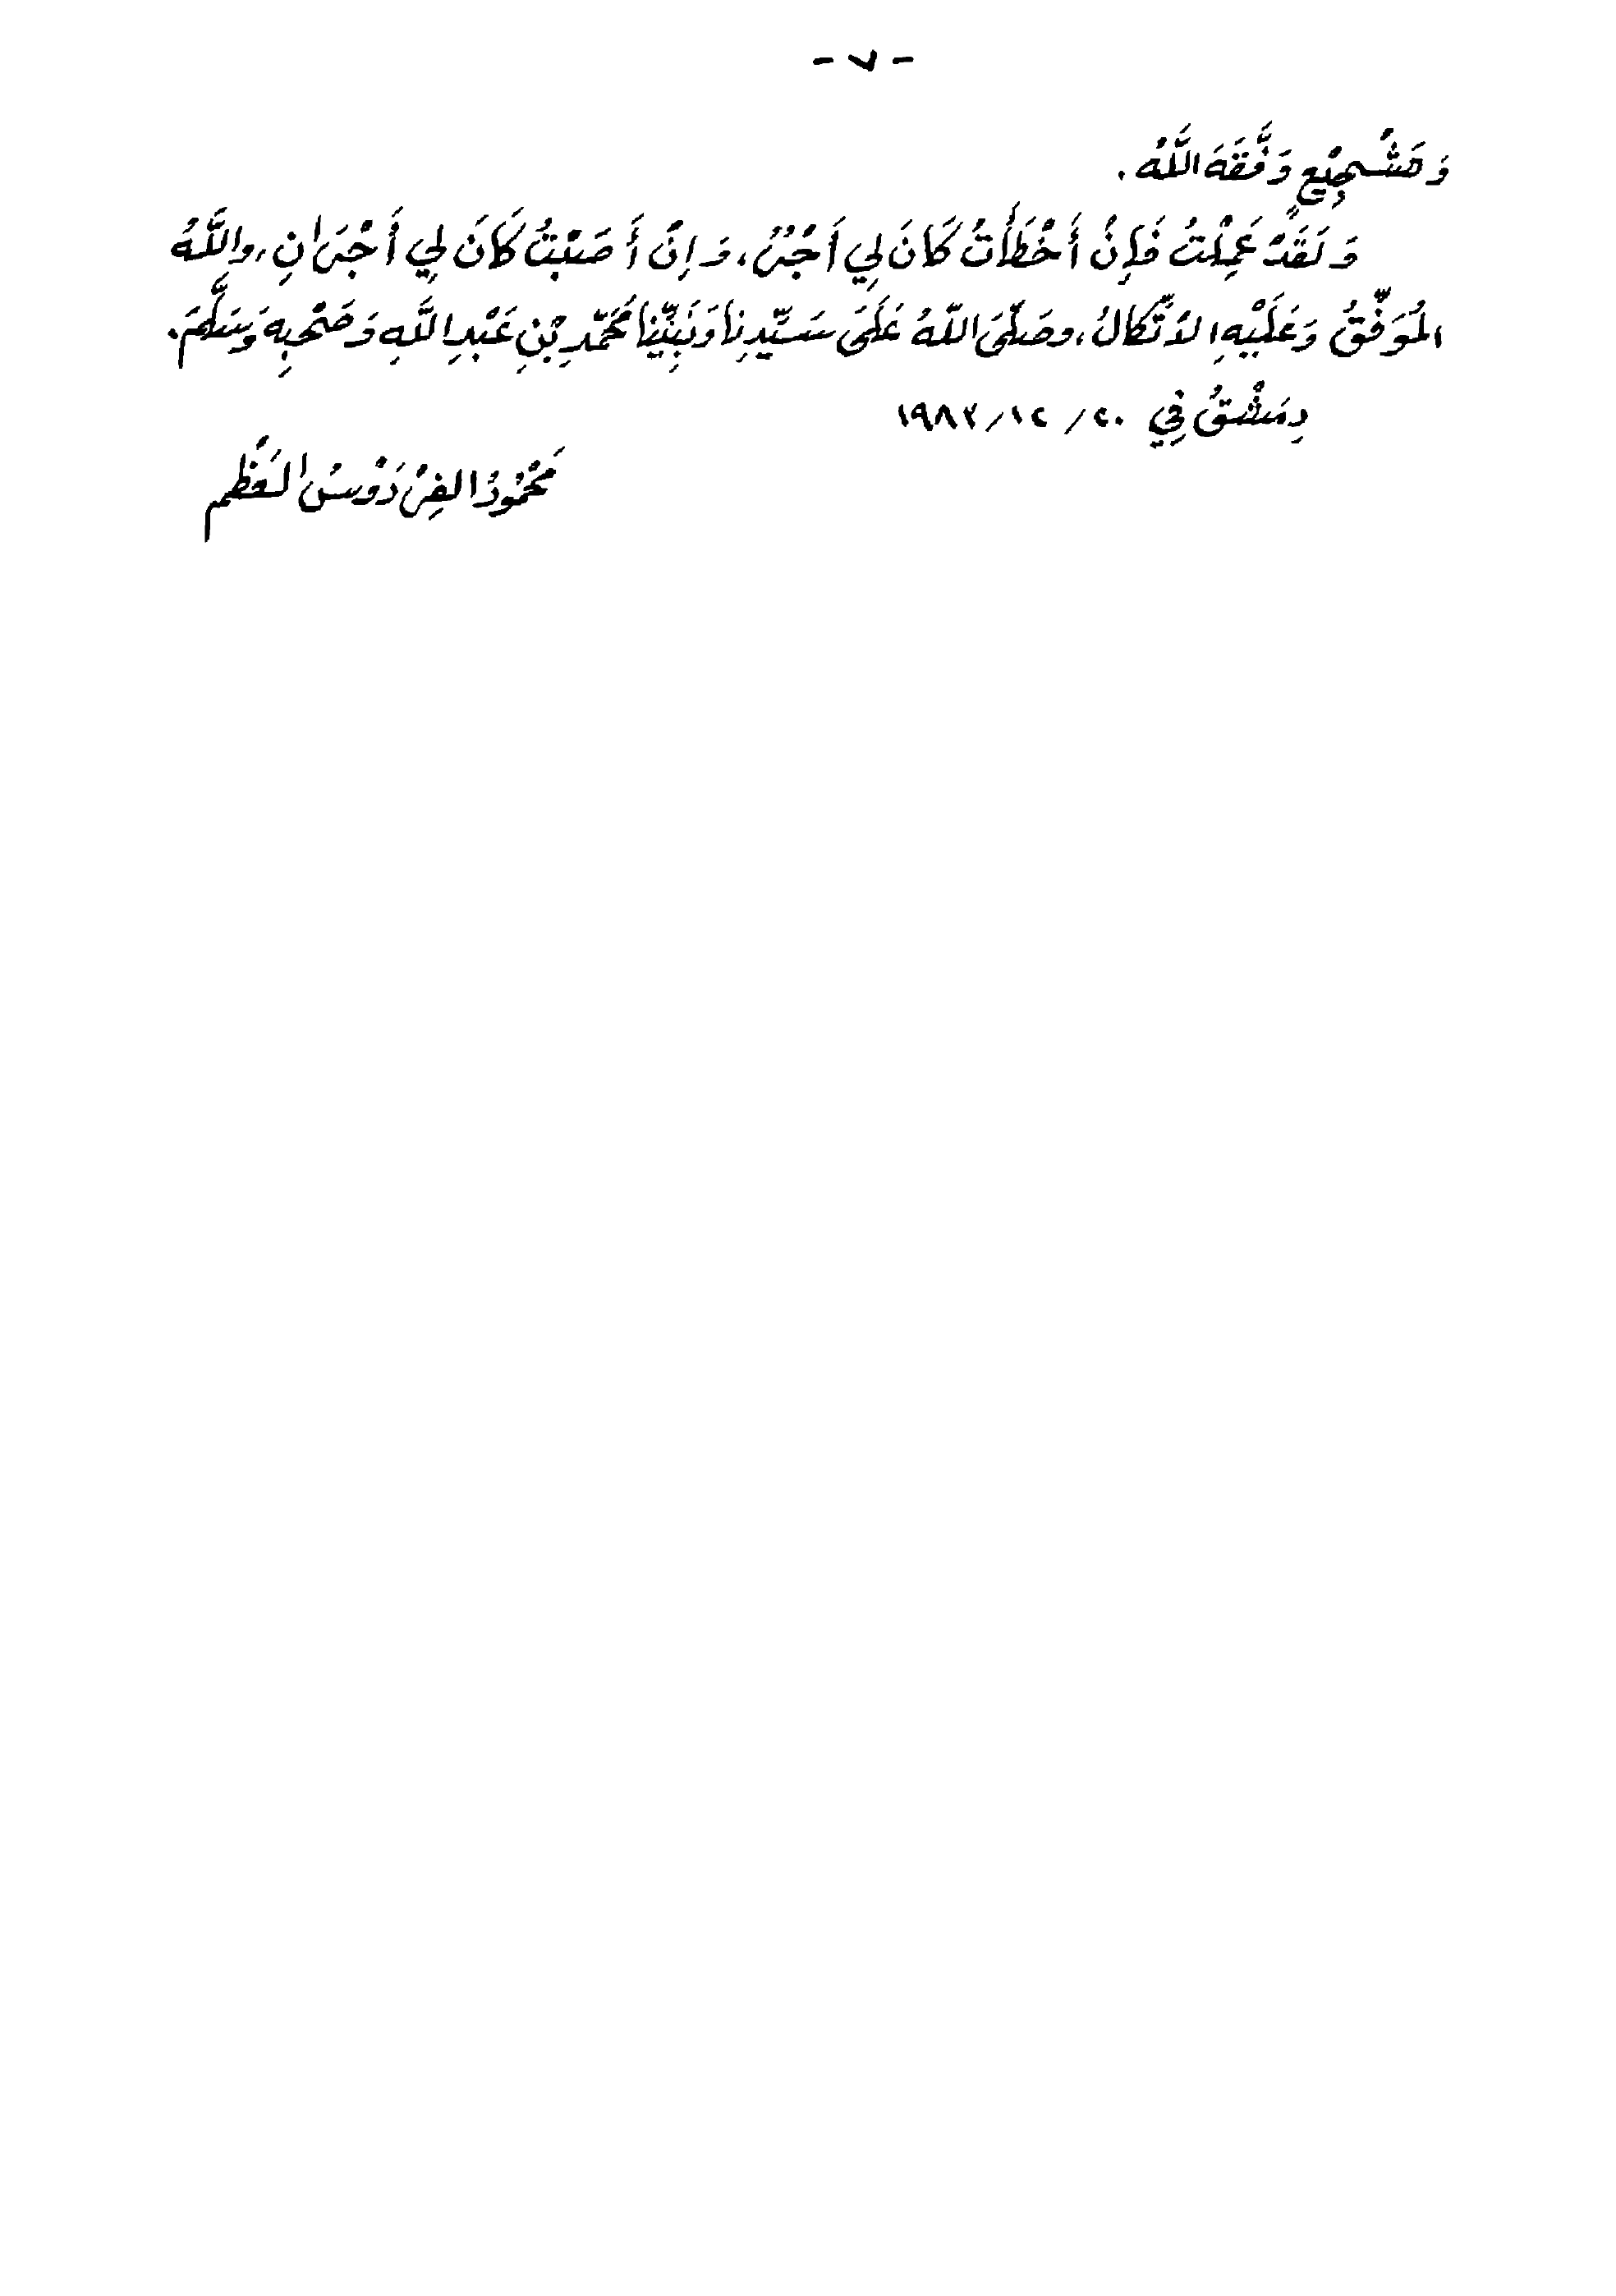 - ٧ -
وَتَشْجِيْعٍ وَفَّقَهَ اللَّهُ .
وَلَقَدْ عَمِلْتُ فَإِنْ أَخْطَأْتُ كَانَ لِي أَجْرٌ ، وَإِنْ أَصَبْتُ كَانَ لِي أَجْرَانِ ، واللَّهُ
المُوَفِّقُ وَعَلَيْهِ الاتِّكَالُ ، وصَلَّىَ اللَّهُ عَلَىَ سَيِّدِنَا وَنَبِيِّنَا مُحَمَّدِ بْنِ عَبْدِ اللَّهِ وَصَحْبِهِ وَسَلَّمَ .
دِمَشْقُ فِي ٢٠ / ١٢ / ١٩٨٢
مَحْمُودُ الفِرْدَوْسُ العَظْم